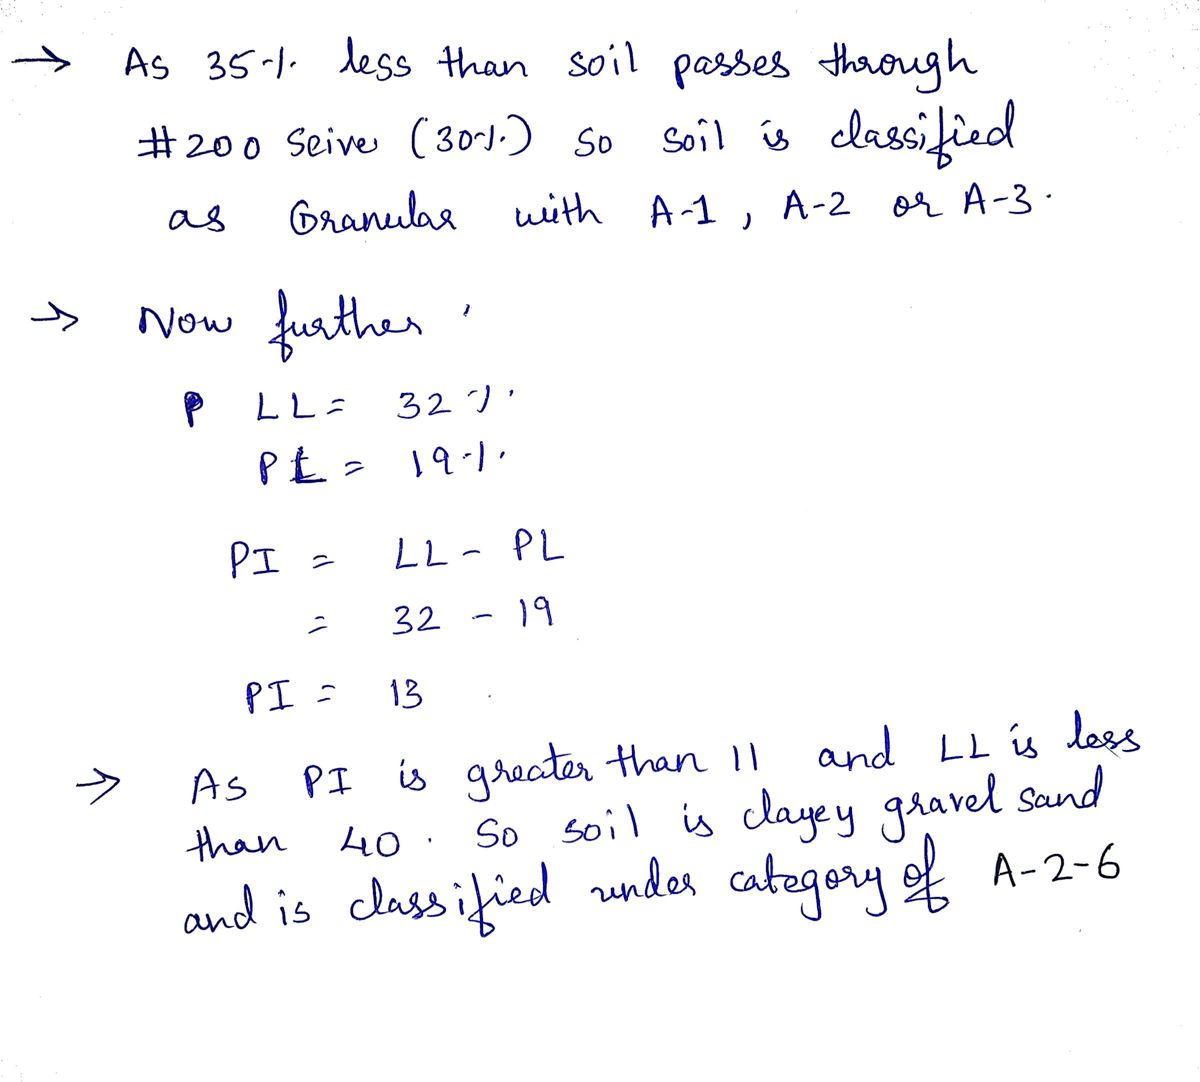 → As 35% less than soil passes through
#200 Seive (30%) so soil is classified
as Granular with A-1, A-2 or A-3.
→ Now further,
P LL = 32%.
PL = 19%.
PI = LL - PL
= 32 - 19
PI = 13
→ As PI is greater than 11 and LL is less
than 40. So soil is clayey gravel sand
and is classified under category of A-2-6